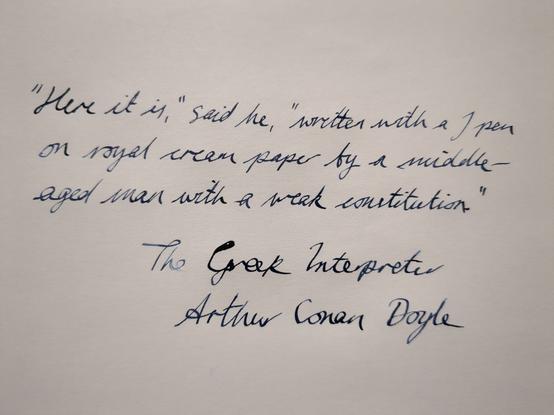 "Here it is," said he, "written with a J pen
on royal cream paper by a middle-
aged man with a weak constitution"
The Greek Interpreter
Arthur Conan Doyle